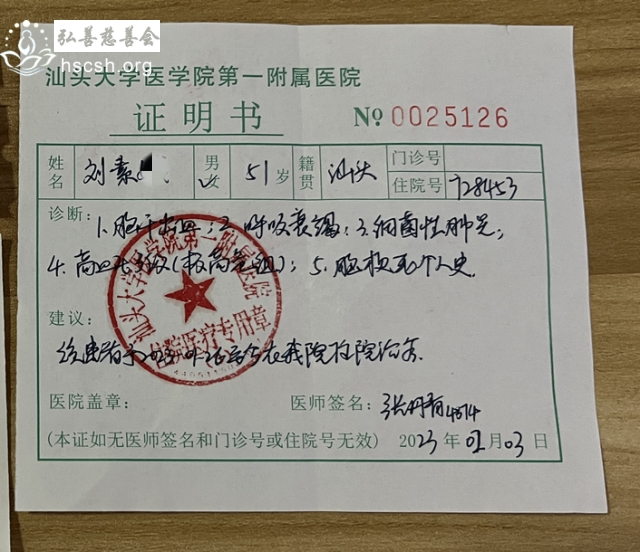 弘善慈善会
hscsh.org
汕头大学医学院第一附属医院
证明书
№ 0025126
姓名 刘素 男女 51岁 籍贯 汕头 门诊号
住院号 728453
诊断: 1.脑干出血; 2.呼吸衰竭; 3.细菌性肺炎;
4.高血压3级(极高危组); 5.脑梗死个人史.
汕头大学医学院第一附属医院
住院医疗专用章
建议:
该患者于2023 在我院住院治疗.
医院盖章: 医师签名: 4614
(本证如无医师签名和门诊号或住院号无效) 2023年02月03日